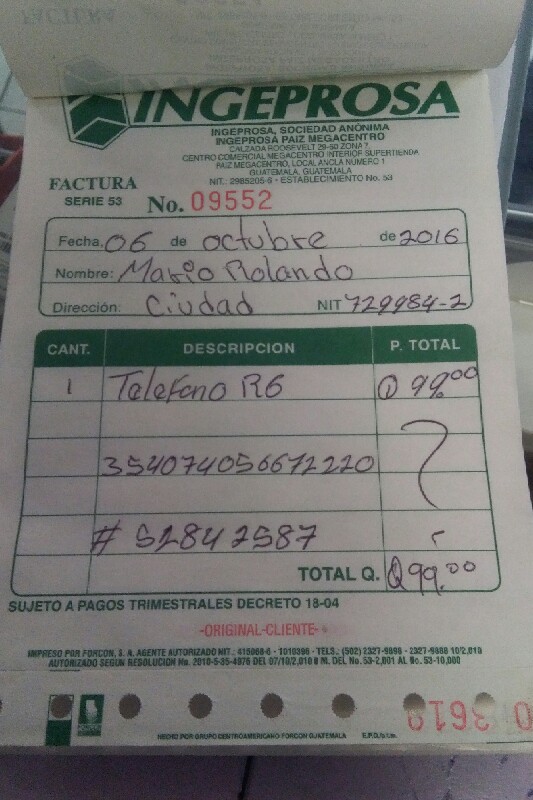 FACTURA
INGEPROSA
INGEPROSA, SOCIEDAD ANÓNIMA
INGEPROSA PAIZ MEGACENTRO
CALZADA ROOSEVELT 29-60 ZONA 7,
CENTRO COMERCIAL MEGACENTRO INTERIOR SUPERTIENDA
PAIZ MEGACENTRO, LOCAL ANCLA NÚMERO 1
GUATEMALA, GUATEMALA
NIT.: 2985205-6 • ESTABLECIMIENTO No. 53
FACTURA
SERIE 53 No. 09552
Fecha, 06 de octubre de 2016
Nombre: Mario Rolando
Dirección: Ciudad NIT 729984-2
CANT. DESCRIPCION P. TOTAL
1 Telefono R6 Q 99.00
354074056672220
# 52842587
TOTAL Q. Q99.00
SUJETO A PAGOS TRIMESTRALES DECRETO 18-04
-ORIGINAL-CLIENTE-
IMPRESO POR FORCON, S. A. AGENTE AUTORIZADO NIT.: 415068-6 - 1010396 - TELS.: (502) 2327-9898 - 2327-9888 10/2,010
AUTORIZADO SEGUN RESOLUCION No. 2010-5-35-4976 DEL 07/10/2,010 # M. DEL No. 53-2,001 AL No. 53-10,000
HECHO POR GRUPO CENTROAMERICANO FORCON GUATEMALA